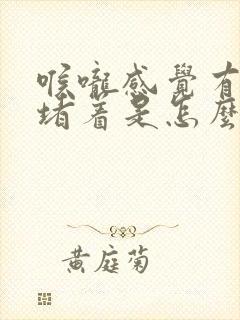 喉嚨感覺有
堵着是怎麼
黃庭菊